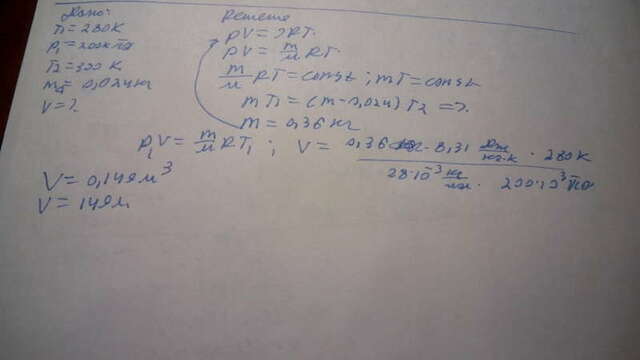 Дано:
T₁ = 280К
p₁ = 200кПа
T₂ = 300 К
m₁ = 0,024кг
V = ?
Решение
pV = νRT.
pV = m/м RT.
m/м RT = const ; mT = const
mT₁ = (m - 0,024) T₂ =>.
m = 0,36 кг
p₁V = m/м RT₁ ; V = 0,36 кг · 8,31 Дж/кг·К · 280К
28·10⁻³ кг/мол · 200·10³ Па
V = 0,149м³
V = 149л